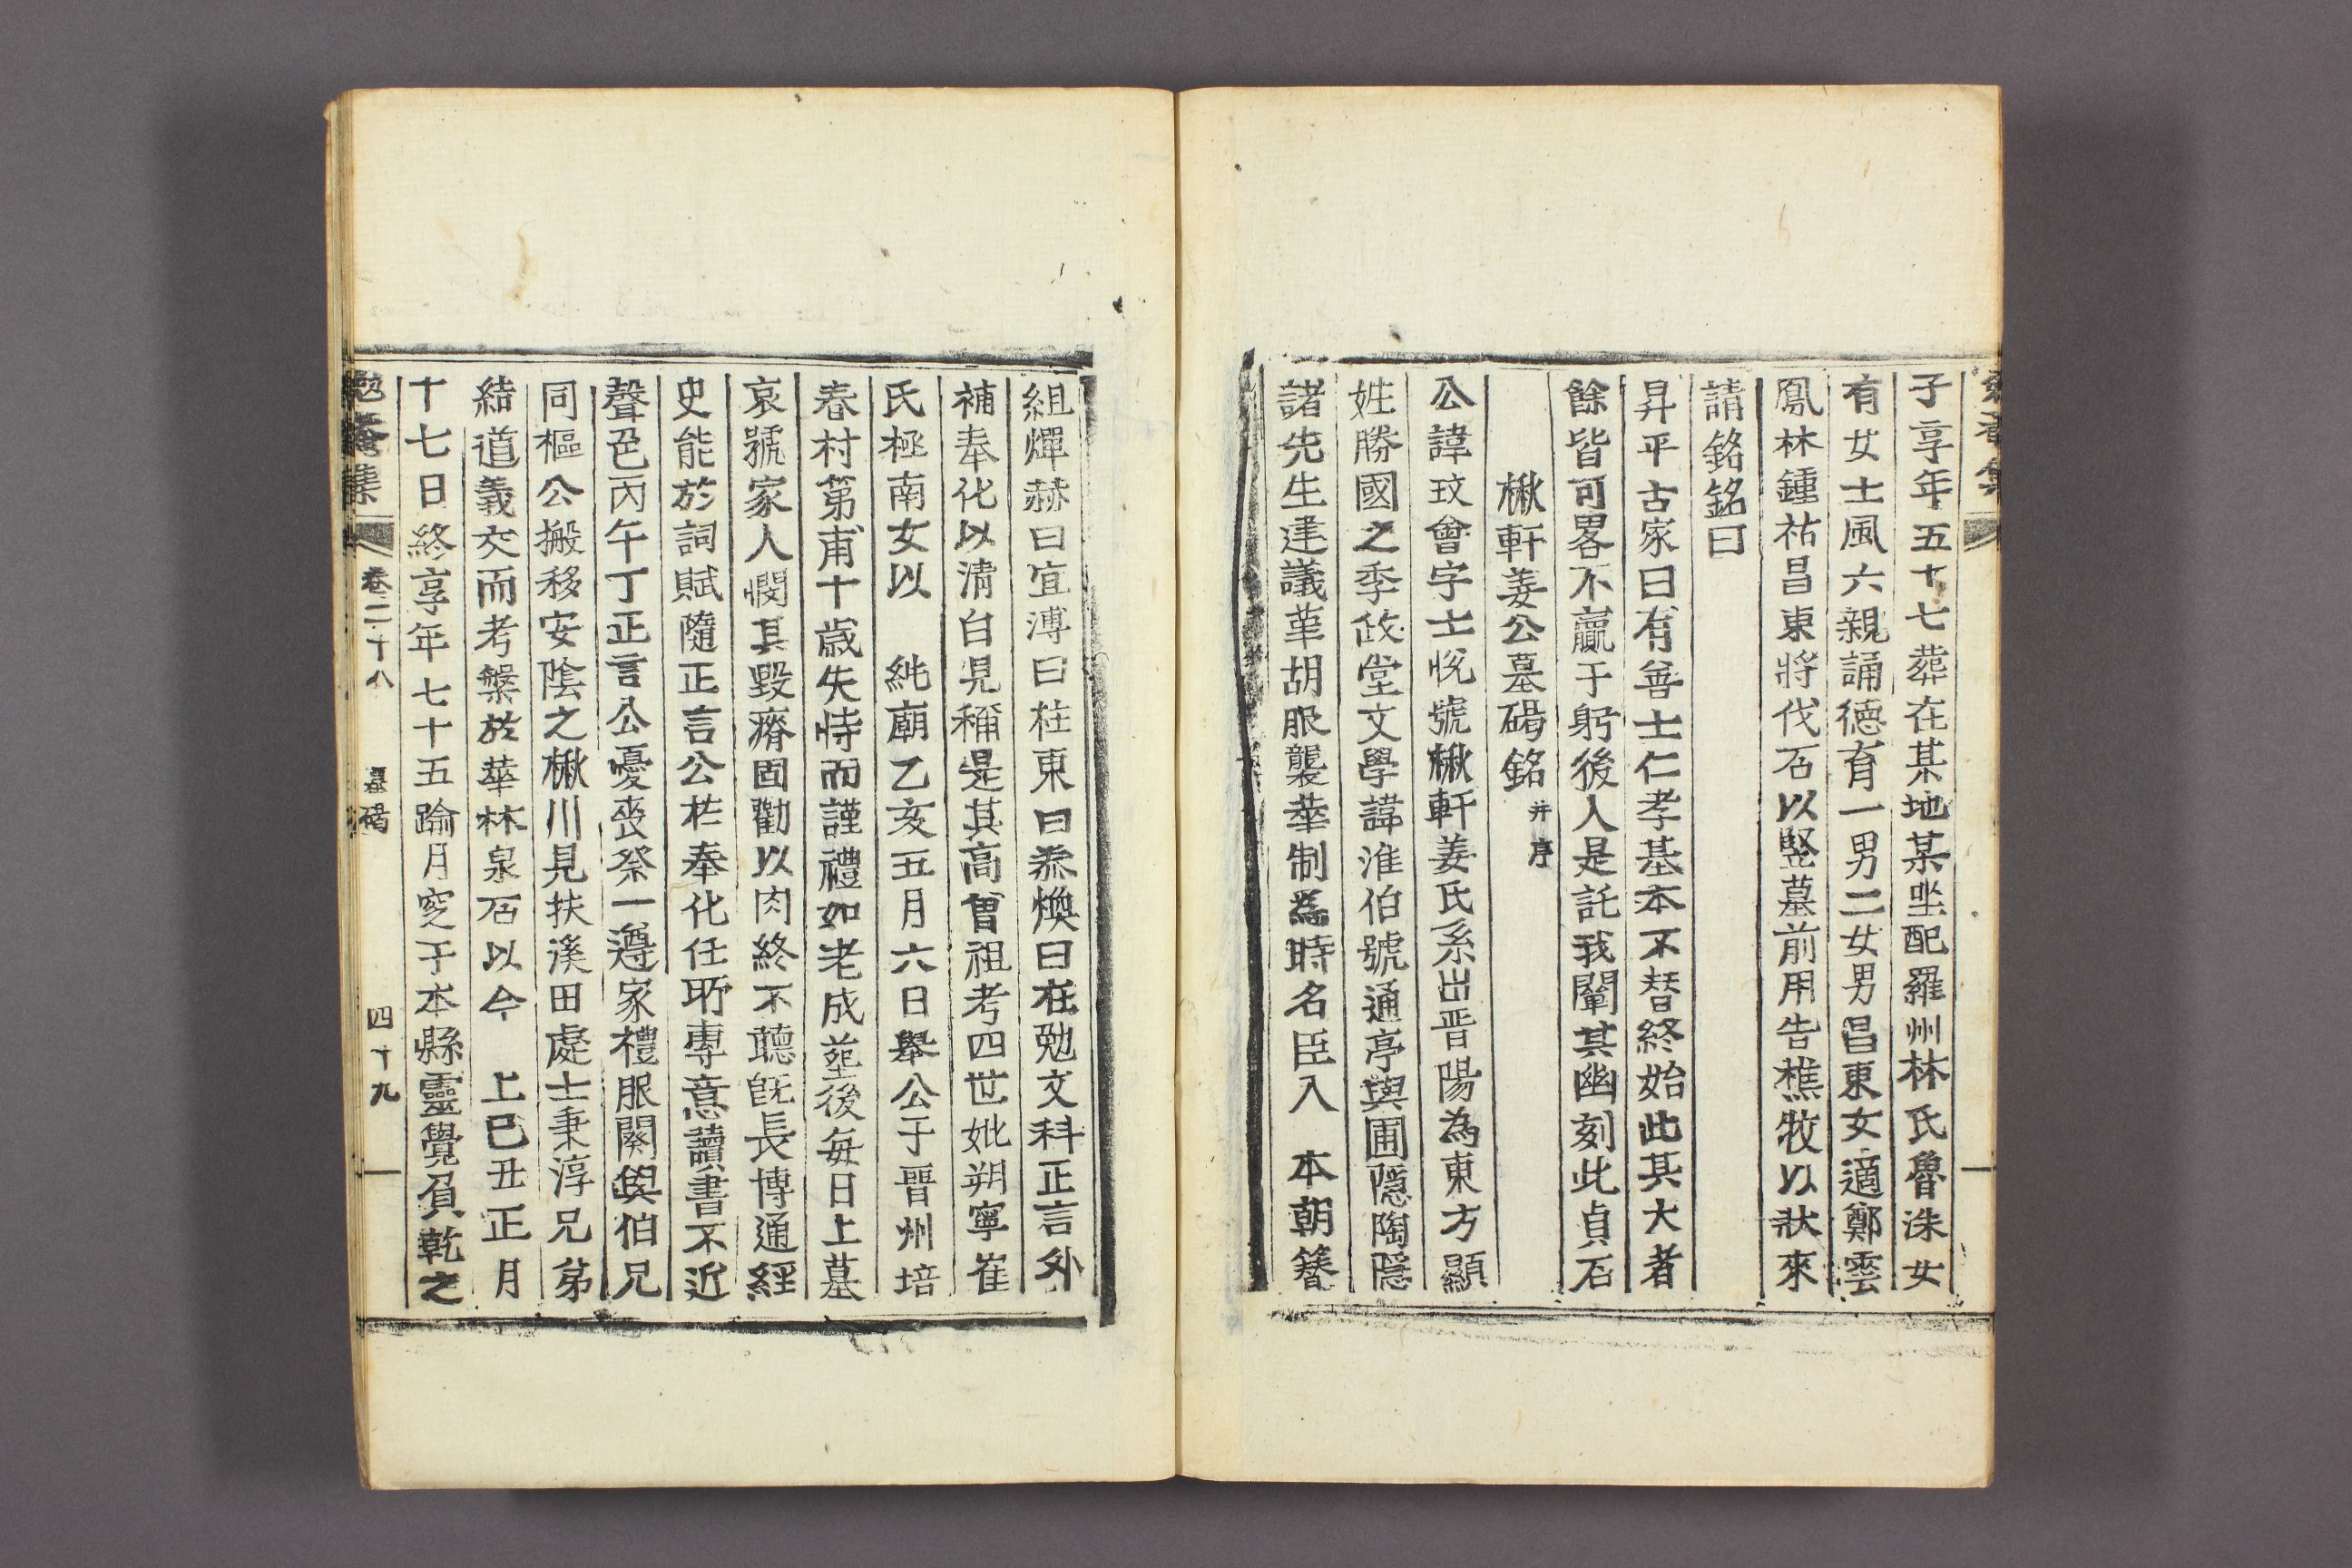 子享年五十七葬在某地某坐配羅州林氏魯洙女
有女士風六親誦德育一男二女男昌東女適鄭雲
鳳林鍾祐昌東將伐石以竪墓前用告樵牧以狀來
請銘銘曰
昇平古家曰有善士仁孝基本不替終始此其大者
餘皆可畧不贏于躬後人是託我闡其幽刻此貞石
楸軒姜公墓碣銘 并序
公諱玟會字士悅號楸軒姜氏系出晋陽為東方顯
姓勝國之季政堂文學諱淮伯號通亭與圃隱陶隱
諸先生建議革胡服襲華制為時名臣入 本朝簪
組燀赫曰宜溥曰柱東曰烝煥曰在勉文科正言外
補奉化以淸白見稱是其高曾祖考四世妣朔寧崔
氏極南女以 純廟乙亥五月六日舉公于晋州培
春村第甫十歲失恃而謹禮如老成塟後每日上墓
哀號家人憫其毀瘠固勸以肉終不聽旣長博通經
史能於詞賦隨正言公於奉化任所專意讀書不近
聲色丙午丁正言公憂喪祭一遵家禮服闋與伯兄
同樞公搬移安陰之楸川見扶溪田處士秉淳兄弟
結道義交而考槃於華林泉石以今 上己丑正月
十七日終享年七十五踰月窆于本縣靈覺負乾之
勉菴集 卷二十八 墓碣 四十九